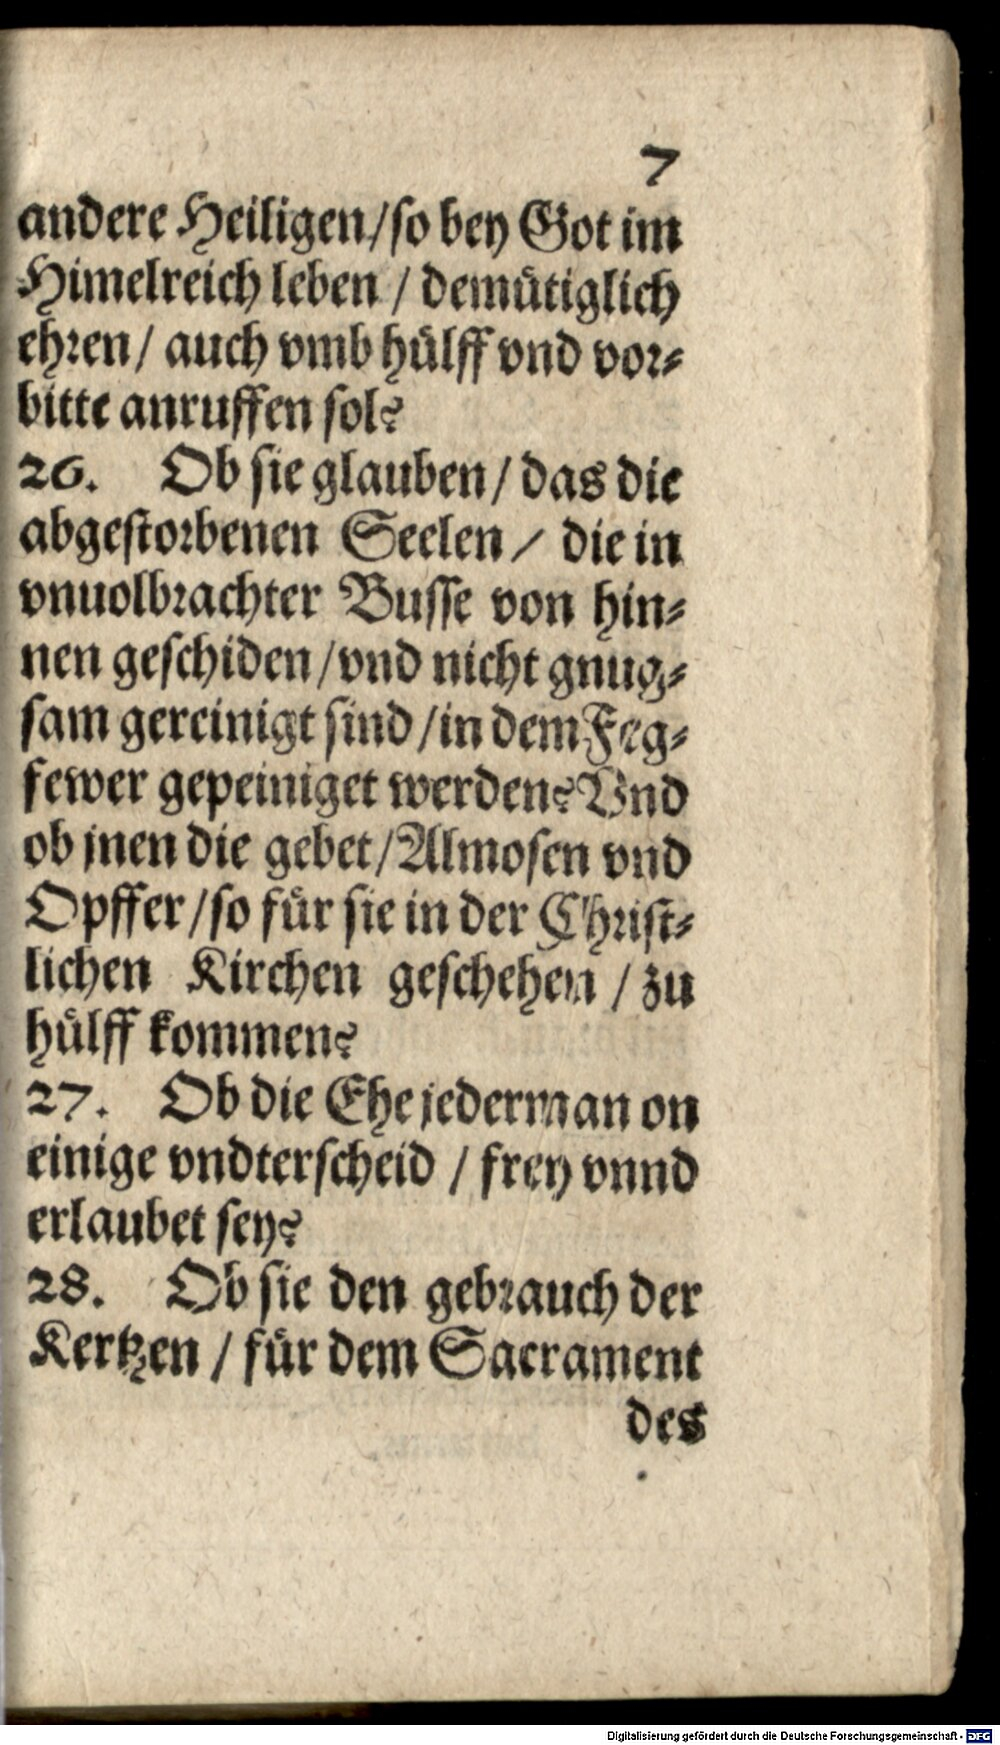 7
andere Heiligen/so bey Got im
Himelreich leben / demütiglich
ehren/ auch vmb hülff vnd vor-
bitte anruffen sol?
26. Ob sie glauben/ das die
abgestorbenen Seelen/ die in
vnuolbrachter Busse von hin-
nen geschiden/vnd nicht gnug-
sam gereinigt sind/in dem Feg-
fewer gepeiniget werden? Vnd
ob jnen die gebet/Almosen vnd
Opffer/so für sie in der Christ-
lichen Kirchen geschehen / zu
hülff kommen?
27. Ob die Ehe jederman on
einige vndterscheid / frey vnnd
erlaubet sey?
28. Ob sie den gebrauch der
Kertzen / für dem Sacrament
des
Digitalisierung gefördert durch die Deutsche Forschungsgemeinschaft - DFG